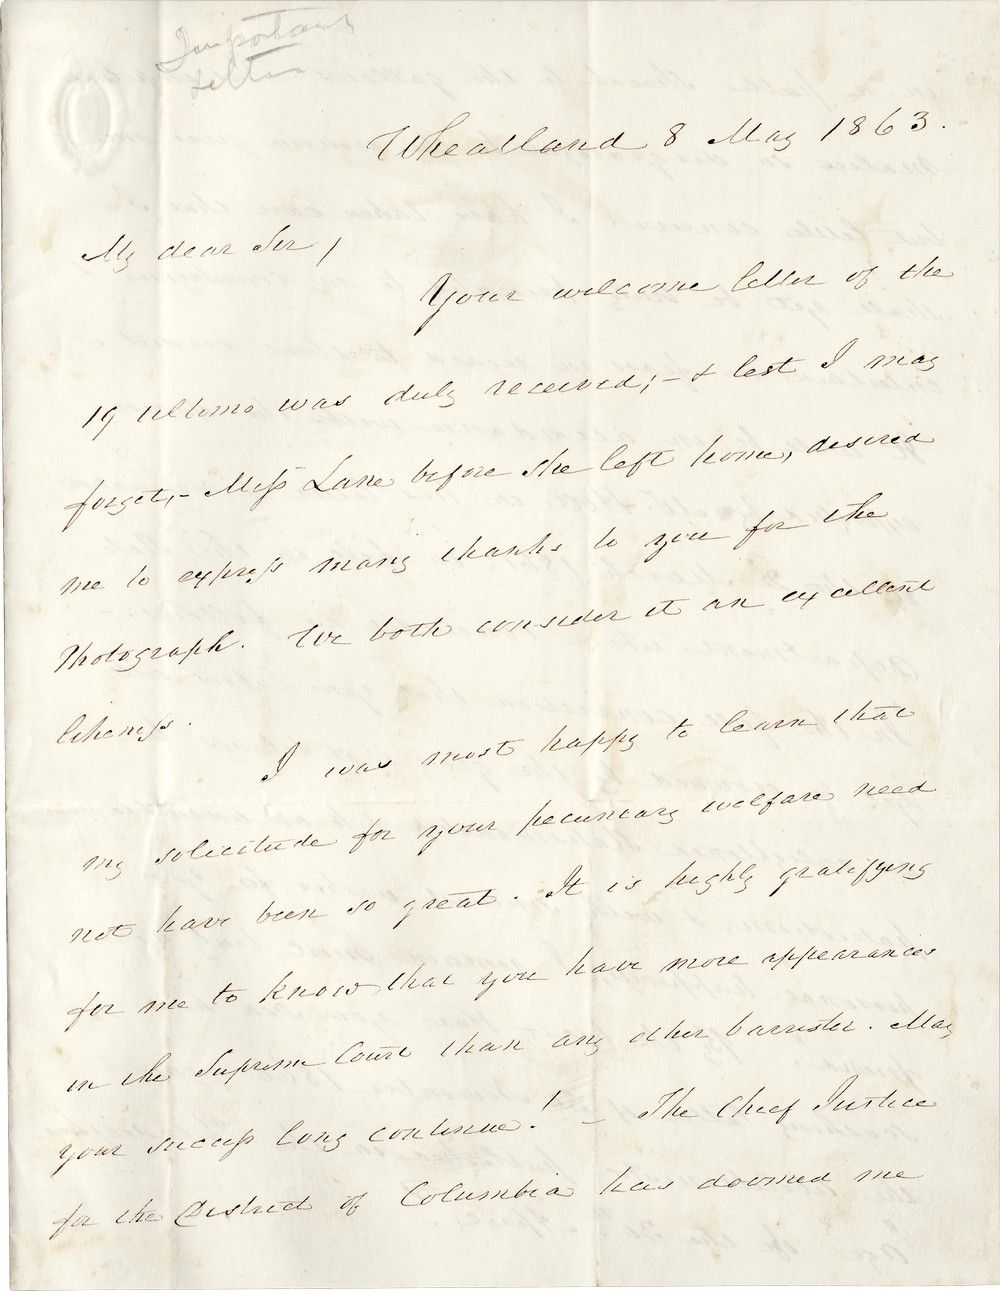 Important
Letter
Wheatland 8 May 1863.
My dear Sir,
Your welcome letter of the
19 ultimo was duly received; – & lest I may
forget, – Miss Lane before she left home, desired
me to express many thanks to you for the
Photograph. We both consider it an excellent
likeness.
I was most happy to learn that
my solicitude for your pecuniary welfare need
not have been so great. It is highly gratifying
for me to know that you have more appearances
in the Supreme Court than any other barrister. May
your success long continue! – The Chief Justice
for the District of Columbia has doomed me